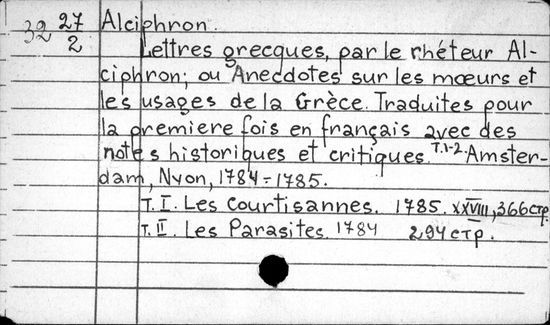 32 27/2 Alciphron.
Lettres grecques, par le rhéteur Al-
ciphron; ou Anecdotes sur les mœurs et
les usages de la Grèce. Traduites pour
la premiere fois en français avec des
notes historiques et critiques. T.1-2. Amster-
dam, Nyon, 1784-1785.
T. I. Les Courtisannes. 1785. XXVIII, 366 стр.
T. II. Les Parasites. 1784 294 стр.